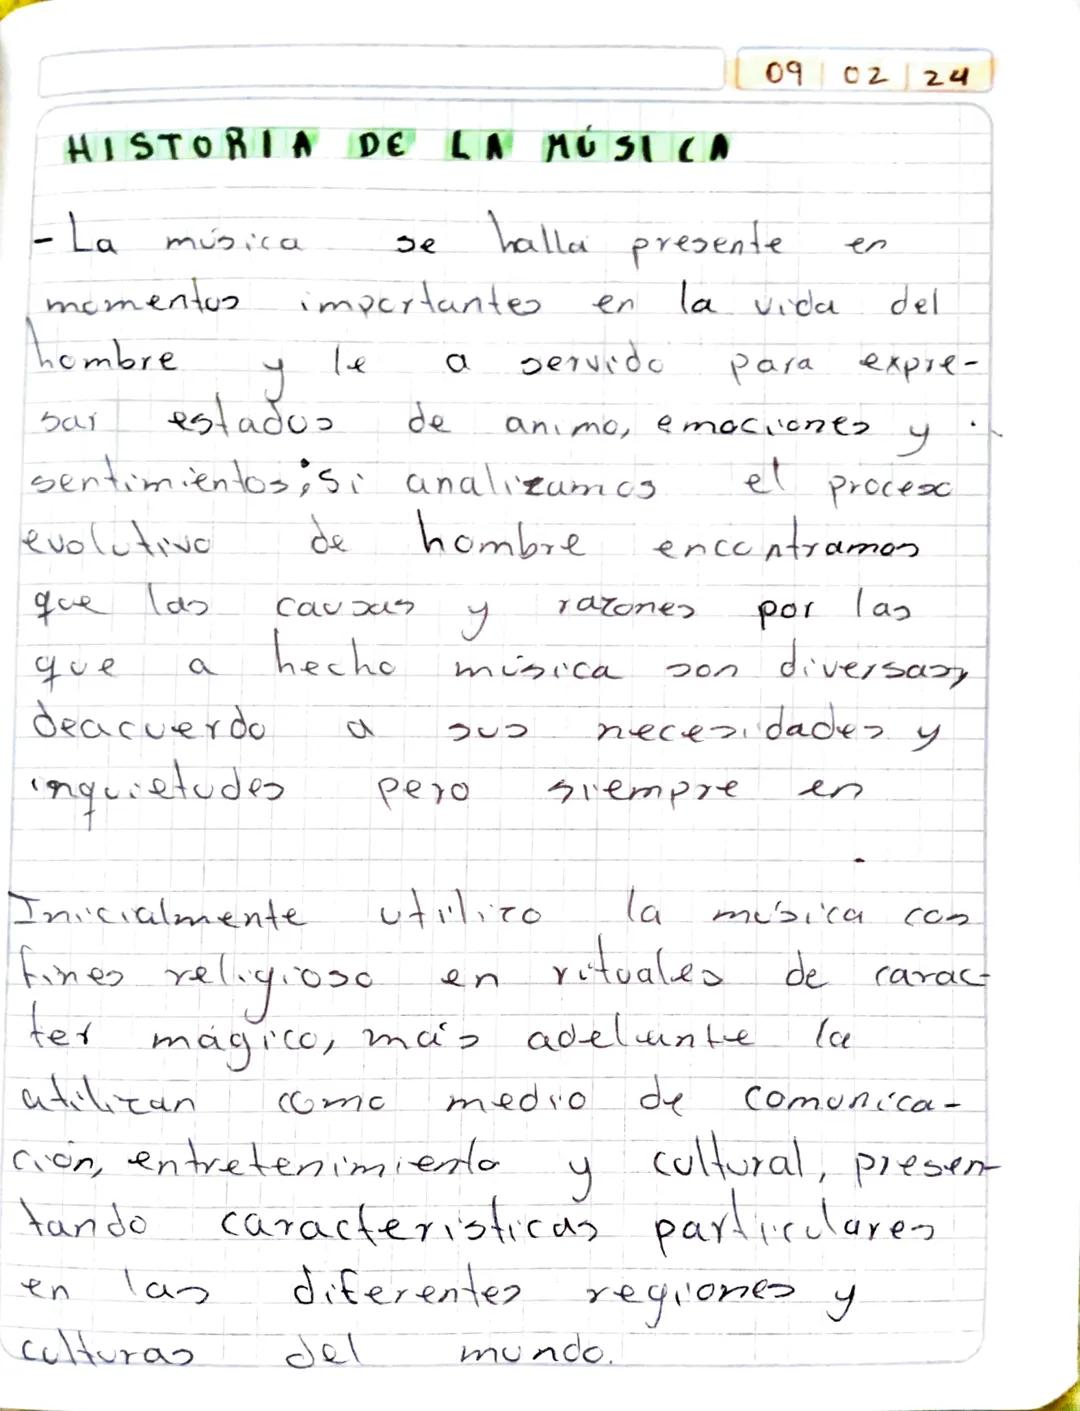 09 02 24
HISTORIA DE LA MÚSICA
- La música se halla presente en
momentos importantes en la vida del
hombre y le a servido para expre-
sar estados de animo, emociones y
sentimientos; si analizamos el proceso
evolutivo de hombre encontramos
que las causas y razones por las
que a hecho música son diversas,
deacuerdo a sus necesidades y
inquietudes pero siempre en
Inicialmente utilizo la música con
fines religioso en rituales de carac-
ter mágico, más adelante la
utilizan como medio de comunica-
ción, entretenimiento y cultural, presen-
tando caracteristicas particulares
en las diferentes regiones y
culturas del mundo.